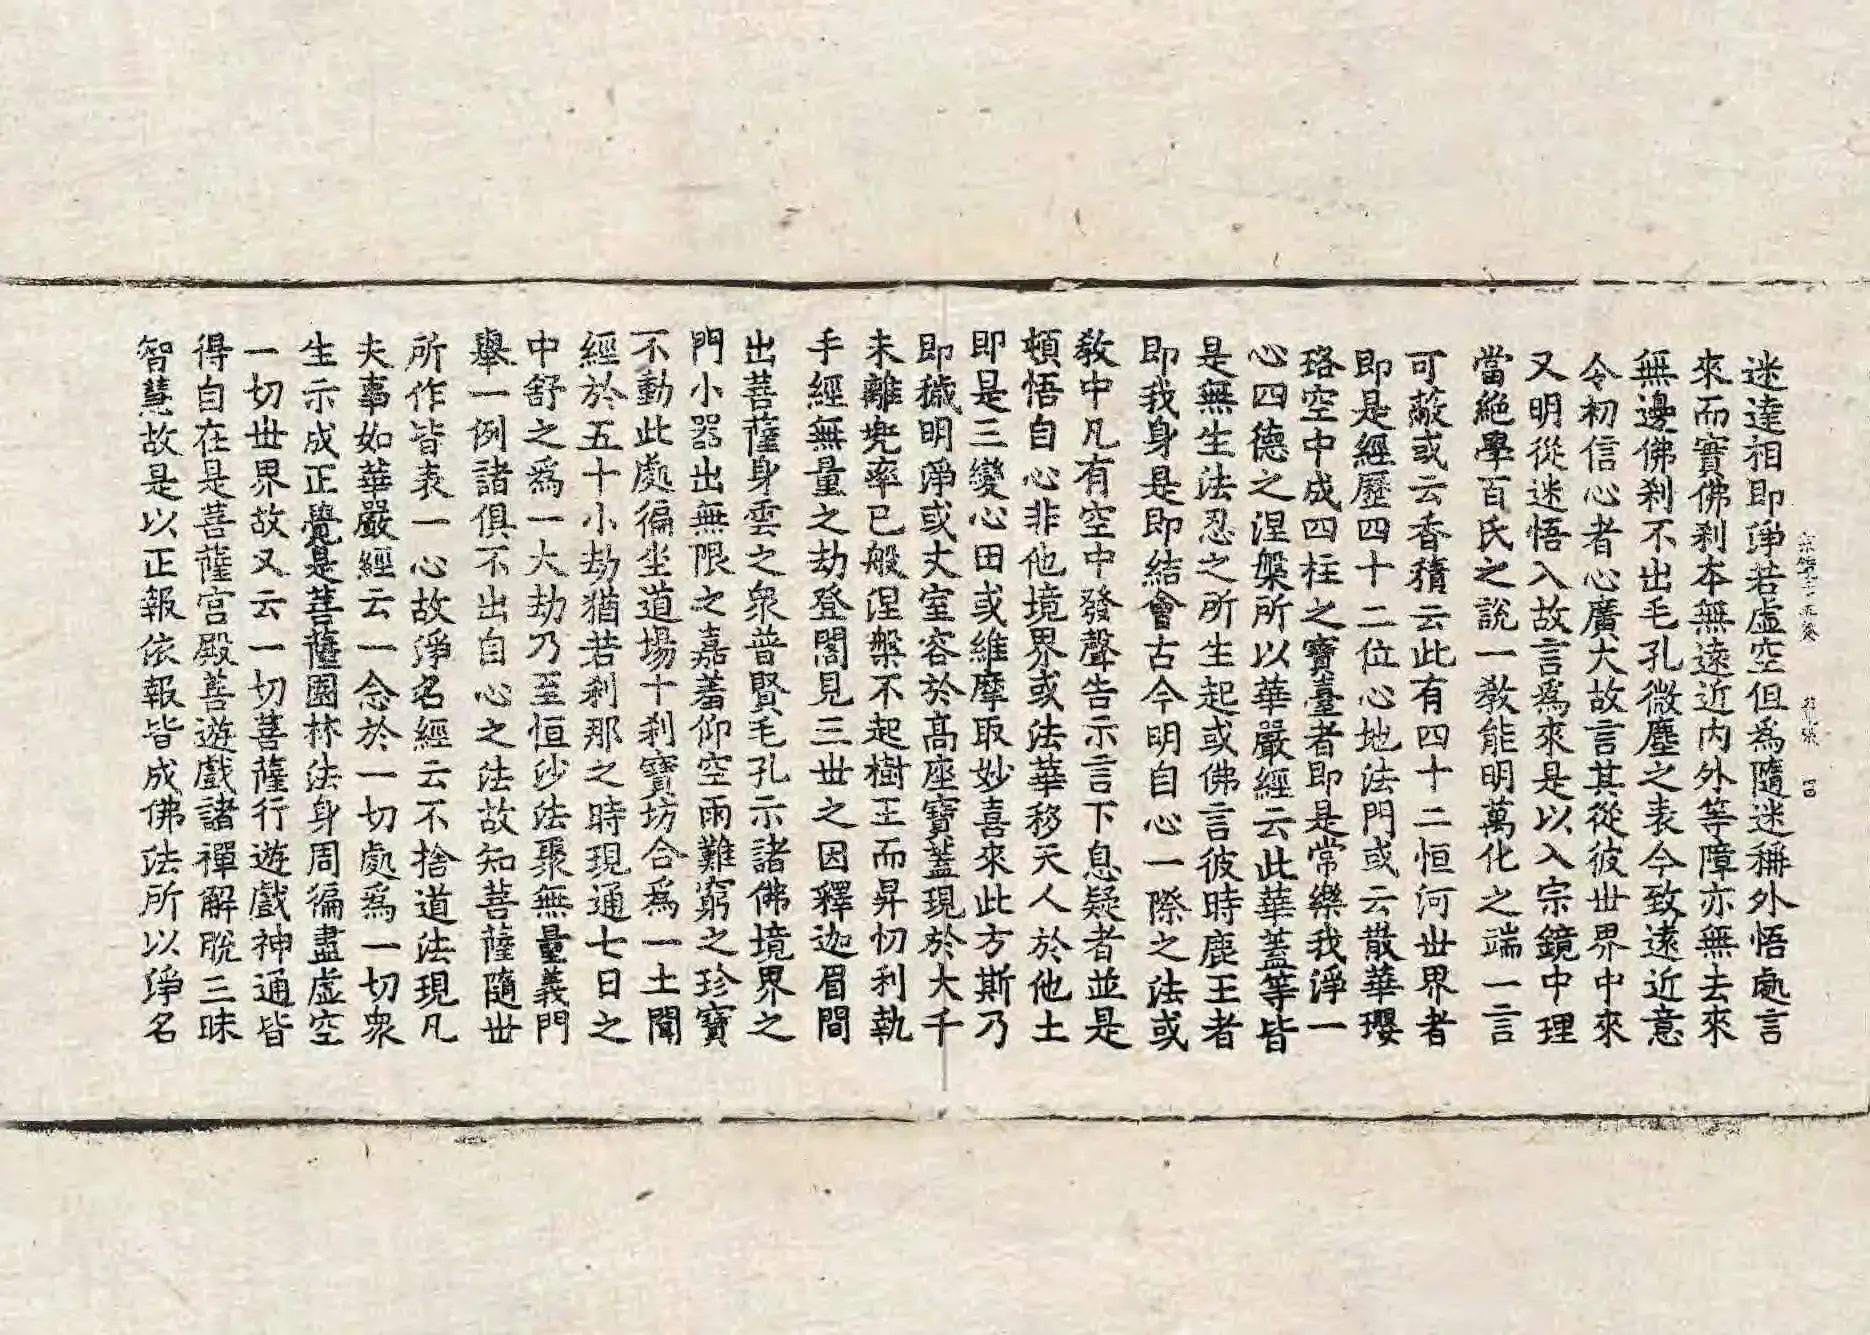 迷達相即淨若虛空但爲隨迷稱外悟處言
來而實佛刹本無遠近內外等障亦無去來
無邊佛刹不出毛孔微塵之表今致遠近意
令初信心者心廣大故言其從彼世界中來
又明從迷悟入故言爲來是以入宗鏡中理
當絕學百氏之說一教能明萬化之端一言
可蔽或云香積云此有四十二恒河世界者
即是經歷四十二位心地法門或云散華瓔
珞空中成四柱之寶臺者即是常樂我淨一
心四德之涅槃所以華嚴經云此華蓋等皆
是無生法忍之所生起或佛言彼時鹿王者
即我身是即結會古今明自心一際之法或
教中凡有空中發聲告示言下息疑者並是
頓悟自心非他境界或法華移天人於他土
即是三變心田或維摩取妙喜來此方斯乃
即穢明淨或丈室容於高座寶蓋現於大千
未離兜率已般涅槃不起樹王而昇忉利執
手經無量之劫登閣見三世之因釋迦眉間
出菩薩身雲之衆普賢毛孔示諸佛境界之
門小器出無限之嘉羞仰空雨難窮之珍寶
不動此處徧坐道場十刹寶坊合爲一土聞
經於五十小劫猶若刹那之時現通七日之
中舒之爲一大劫乃至恒沙法聚無量義門
舉一例諸俱不出自心之法故知菩薩隨世
所作皆表一心故淨名經云不捨道法現凡
夫事如華嚴經云一念於一切處爲一切衆
生示成正覺是菩薩園林法身周徧盡虛空
一切世界故又云一切菩薩行遊戲神通皆
得自在是菩薩宮殿善遊戲諸禪解脫三昧
智慧故是以正報依報皆成佛法所以淨名